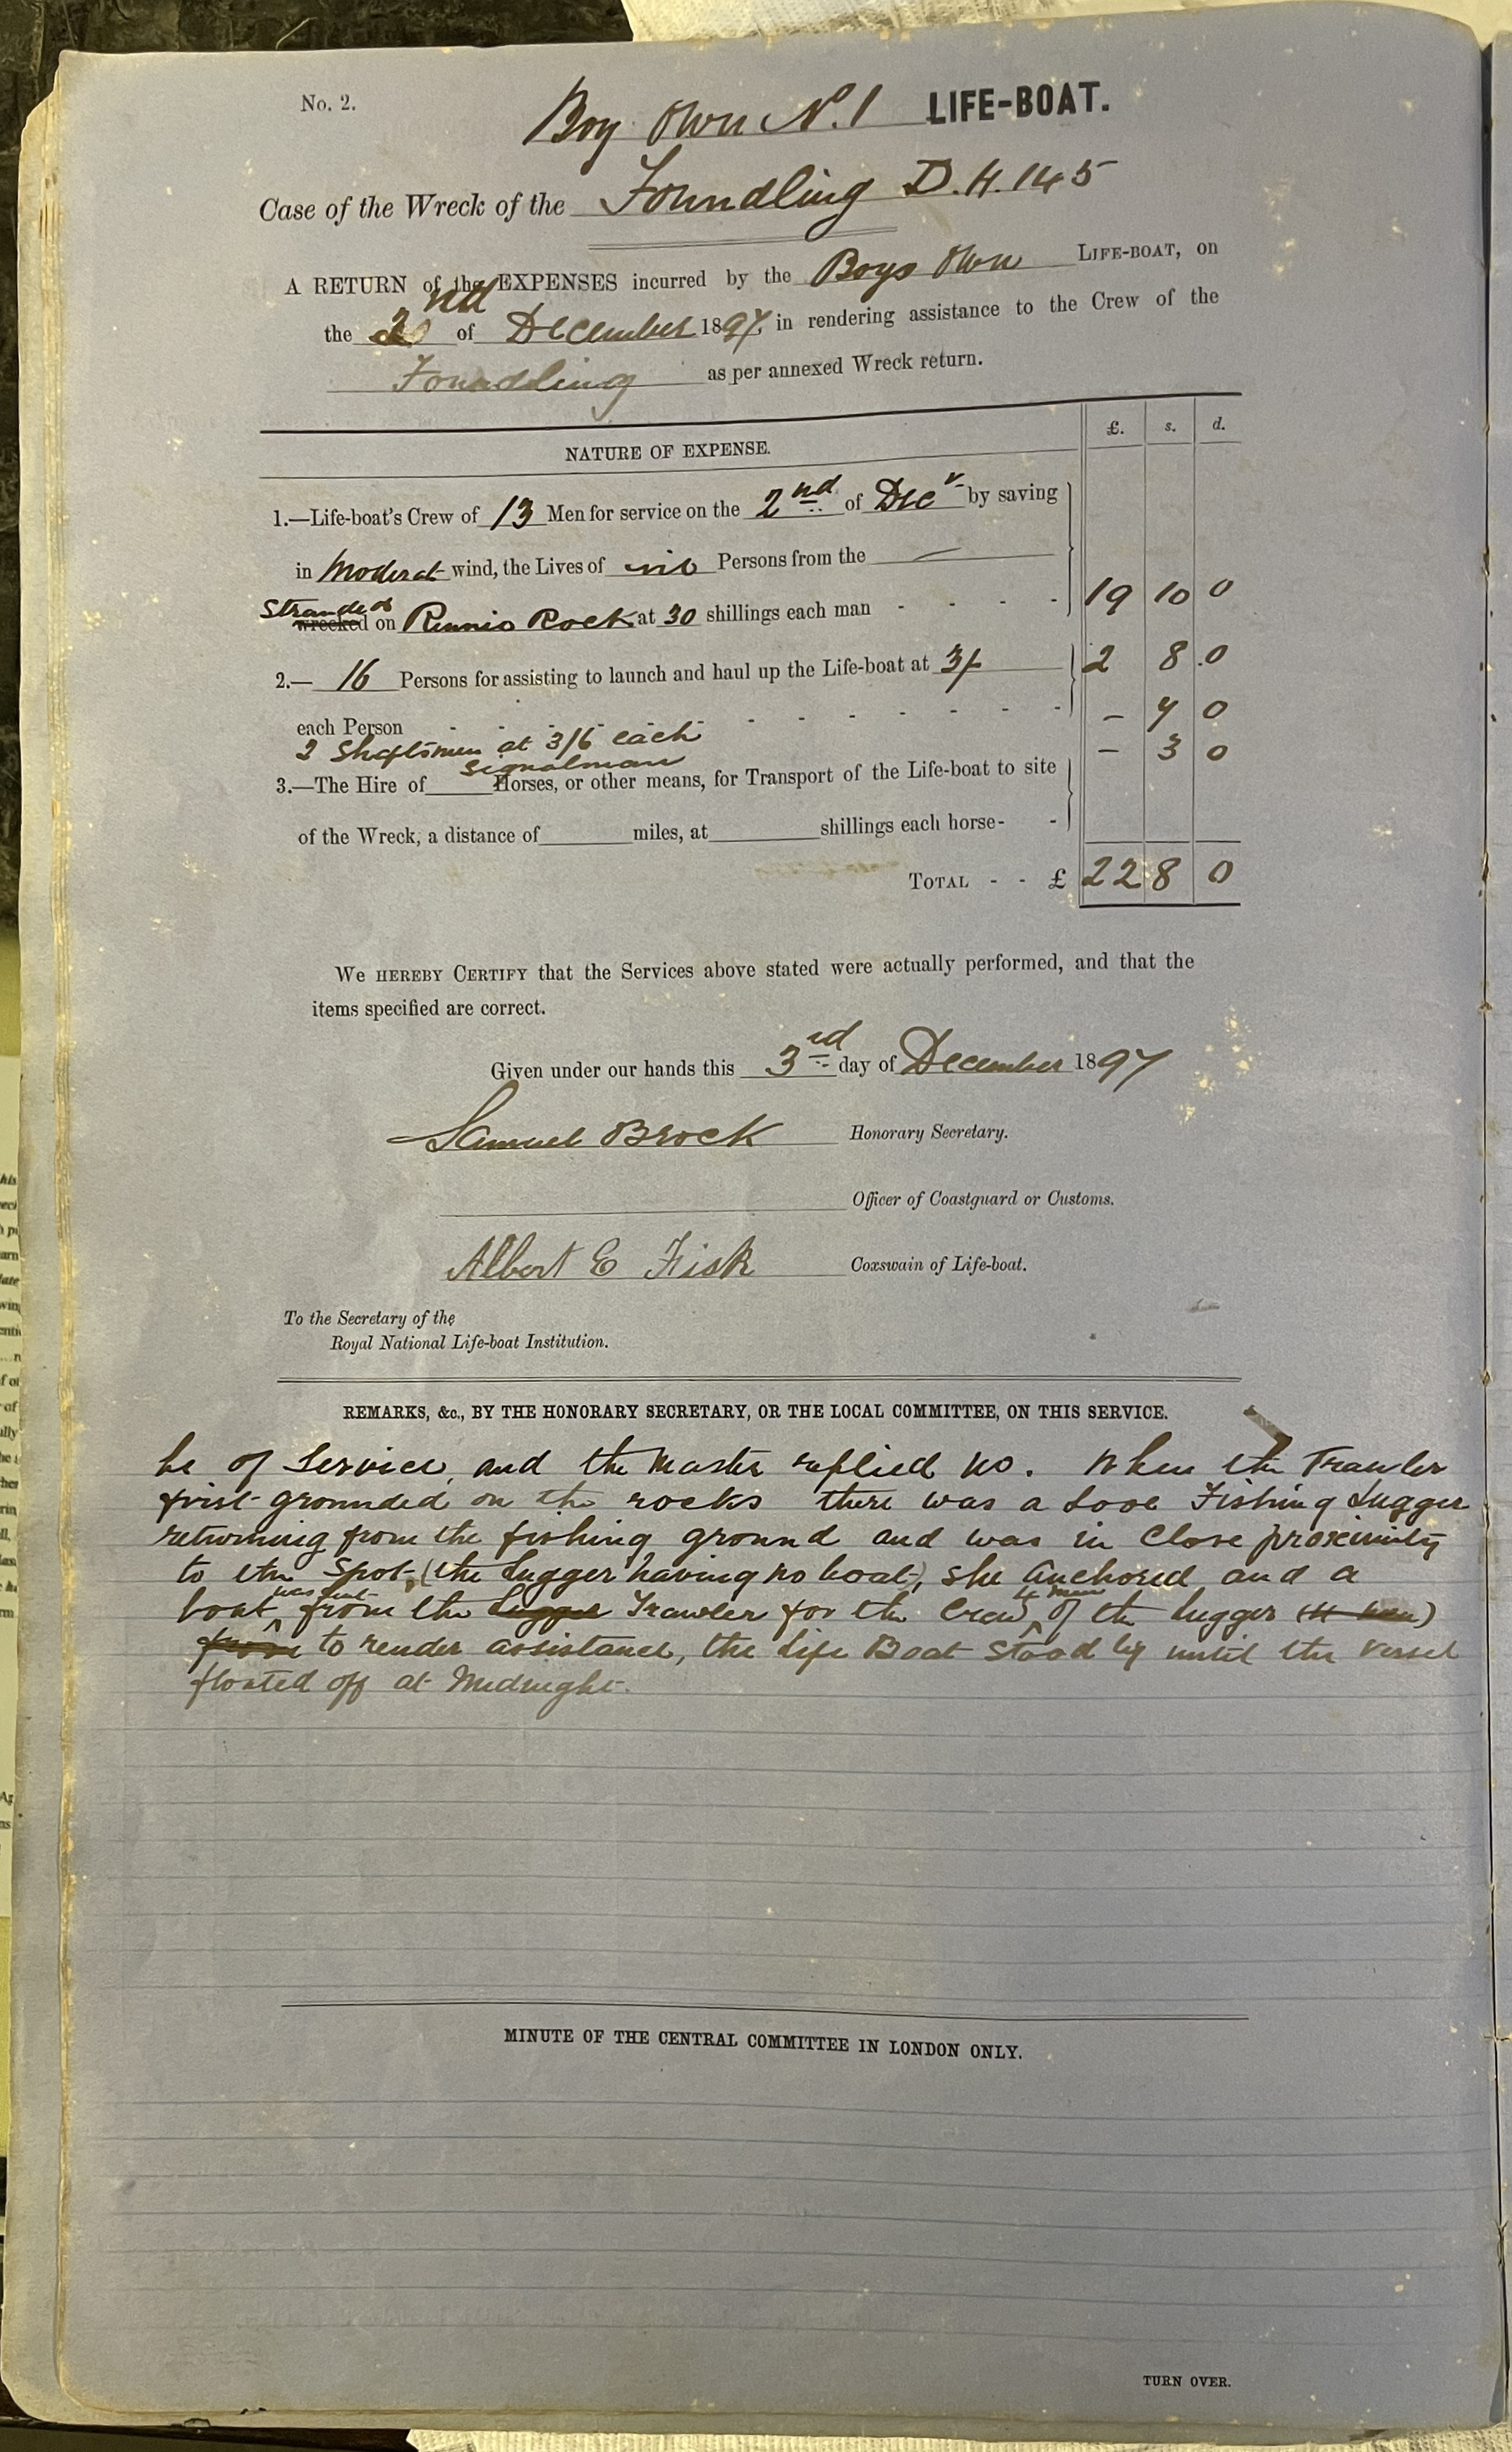 No. 2.
Boy Own No. 1 LIFE-BOAT.
Case of the Wreck of the Foundling D.H. 145
A RETURN of the EXPENSES incurred by the Boys Own LIFE-BOAT, on
the 2nd of December 1897, in rendering assistance to the Crew of the
Foundling as per annexed Wreck return.
NATURE OF EXPENSE. £. s. d.
1.—Life-boat's Crew of 13 Men for service on the 2nd of Decr by saving
in Moderat wind, the Lives of nil Persons from the —
Stranded
wrecked on Rennie Rock at 30 shillings each man - - - - 19 10 0
2.— 16 Persons for assisting to launch and haul up the Life-boat at 3/- 2 8 0
each Person - - - - - - - - - - - - — 7 0
2 Shaftsmen at 3/6 each — 3 0
signalman
3.—The Hire of Horses, or other means, for Transport of the Life-boat to site
of the Wreck, a distance of miles, at shillings each horse - -
TOTAL - - £ 22 8 0
WE HEREBY CERTIFY that the Services above stated were actually performed, and that the
items specified are correct.
Given under our hands this 3rd day of December 1897
Samuel Brock Honorary Secretary.
Officer of Coastguard or Customs.
Albert E Fisk Coxswain of Life-boat.
To the Secretary of the
Royal National Life-boat Institution.
REMARKS, &c., BY THE HONORARY SECRETARY, OR THE LOCAL COMMITTEE, ON THIS SERVICE.
be of Service, and the Master replied no. When the Trawler
first grounded on the rocks there was a Looe Fishing Lugger
returning from the fishing ground and was in close proximity
to the Spot, (the Lugger having no boat), she anchored and a
was sent 4 men
boat from the Lugger Trawler for the Crew of the Lugger
from to render assistance, the Life Boat stood by until the Vessel
floated off at Midnight.
MINUTE OF THE CENTRAL COMMITTEE IN LONDON ONLY.
TURN OVER.